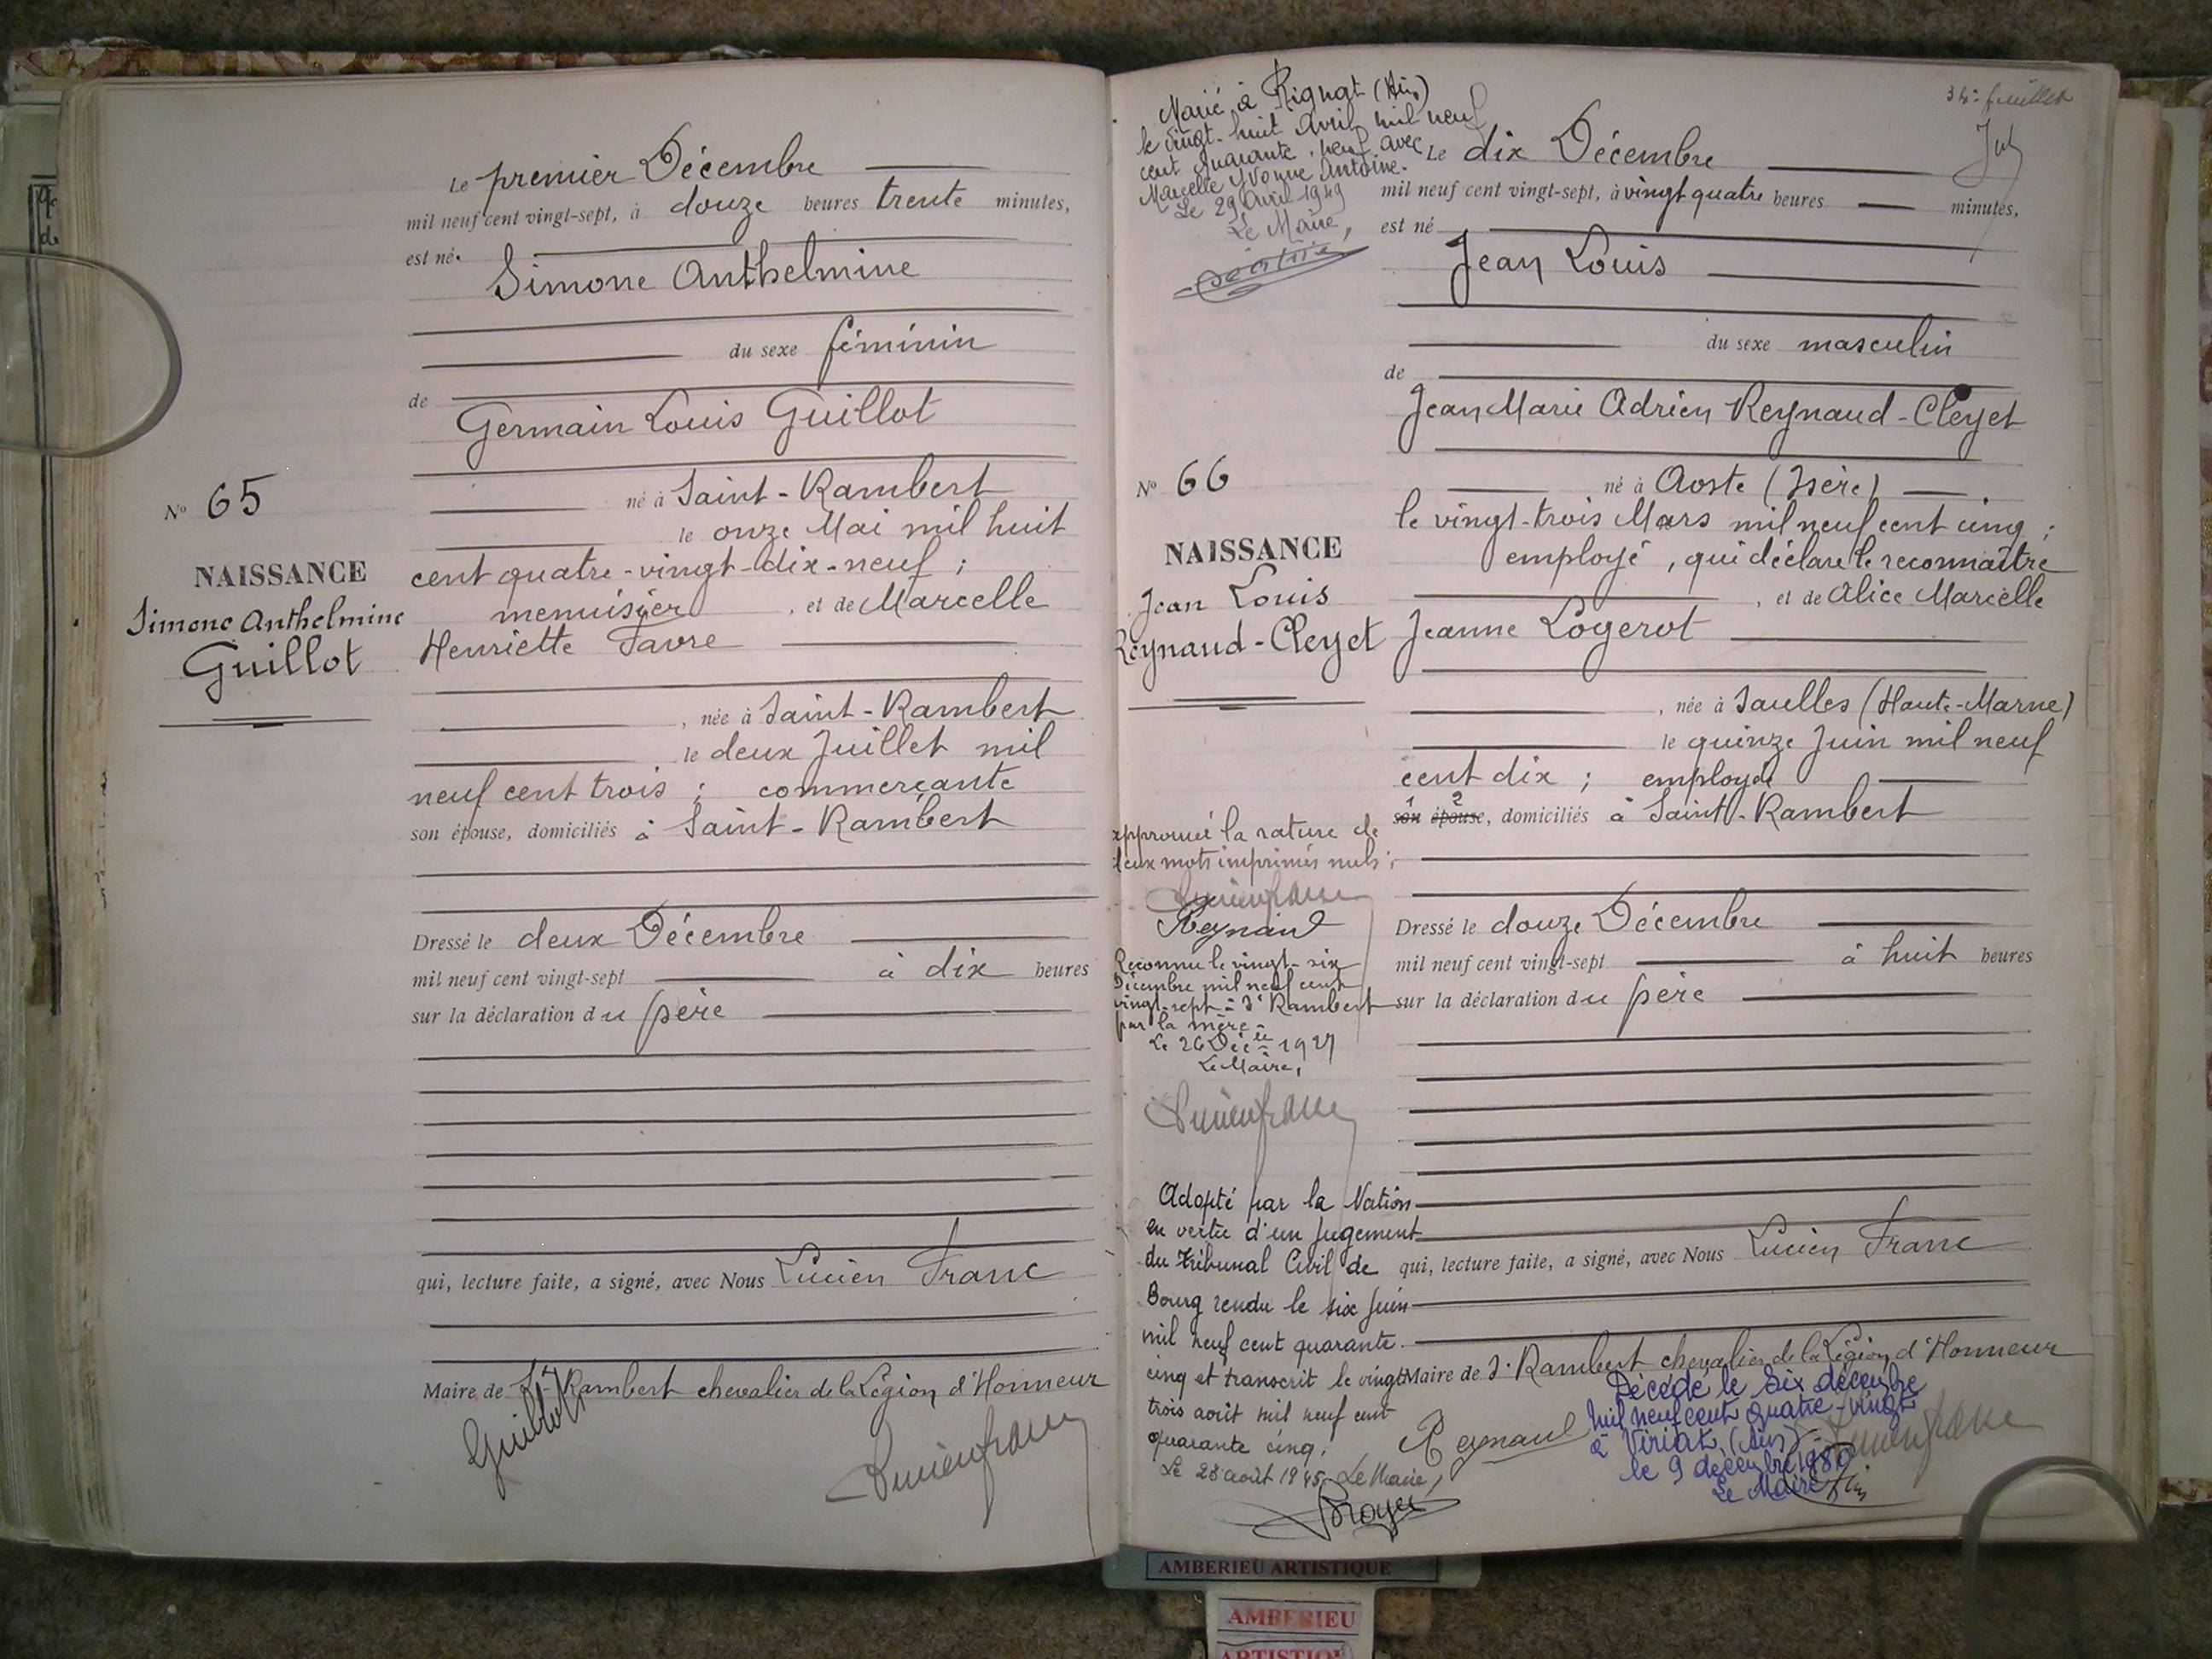 Le premier Décembre
mil neuf cent vingt-sept, à douze heures trente minutes,
est né
Simone Anthelmine
du sexe féminin
de
Germain Louis Guillot
né à Saint-Rambert
le onze Mai mil huit
cent quatre-vingt-dix-neuf ;
menuisier , et de Marcelle
Henriette Favre
, née à Saint-Rambert
le deux Juillet mil
neuf cent trois ; commerçante
son épouse, domiciliés à Saint-Rambert
Dressé le deux Décembre
mil neuf cent vingt-sept à dix heures
sur la déclaration du père
qui, lecture faite, a signé, avec Nous Lucien Franc
Maire de St Rambert chevalier de la Légion d'Honneur
Guillot
Lucien Franc
N° 65
NAISSANCE
Simone Anthelmine
Guillot
34e feuillet
Le dix Décembre
mil neuf cent vingt-sept, à vingt quatre heures minutes,
est né
Jean Louis
du sexe masculin
de
Jean Marie Adrien Reynaud-Cleyet
né à Aoste (Isère)
le vingt-trois Mars mil neuf cent cinq ;
employé, qui déclare le reconnaître
, et de Alice Marcelle
Jeanne Logerot
, née à Saulles (Haute-Marne)
le quinze Juin mil neuf
cent dix ; employée
1 2
son épouse, domiciliés à Saint-Rambert
Dressé le douze Décembre
mil neuf cent vingt-sept à huit heures
sur la déclaration du père
qui, lecture faite, a signé, avec Nous Lucien Franc
Maire de St Rambert chevalier de la Légion d'Honneur
Reynaud
Lucien Franc
Décédé le six décembre
mil neuf cent quatre-vingt
à Viriat (Ain)
le 9 décembre 1980
Le Maire
Marié à Rignat (Ain)
le vingt-huit Avril mil neuf
cent quarante-neuf avec
Marcelle Yvonne Antoine.
Le 29 Avril 1949
Le Maire,
N° 66
NAISSANCE
Jean Louis
Reynaud-Cleyet
approuvé la rature de
deux mots imprimés nuls ;
Lucien Franc
Reynaud
Reconnu le vingt-six
Décembre mil neuf cent
vingt-sept à St Rambert
par la mère -
Le 26 Déc bre 1927
Le Maire,
Lucien Franc
Adopté par la Nation
en vertu d'un Jugement
du Tribunal Civil de
Bourg rendu le six Juin
mil neuf cent quarante-
cinq et transcrit le vingt
trois août mil neuf cent
quarante cinq.
Le 28 août 1945 Le Maire,
AMBERIEU ARTISTIQUE
AMBERIEU
ARTISTIQUE